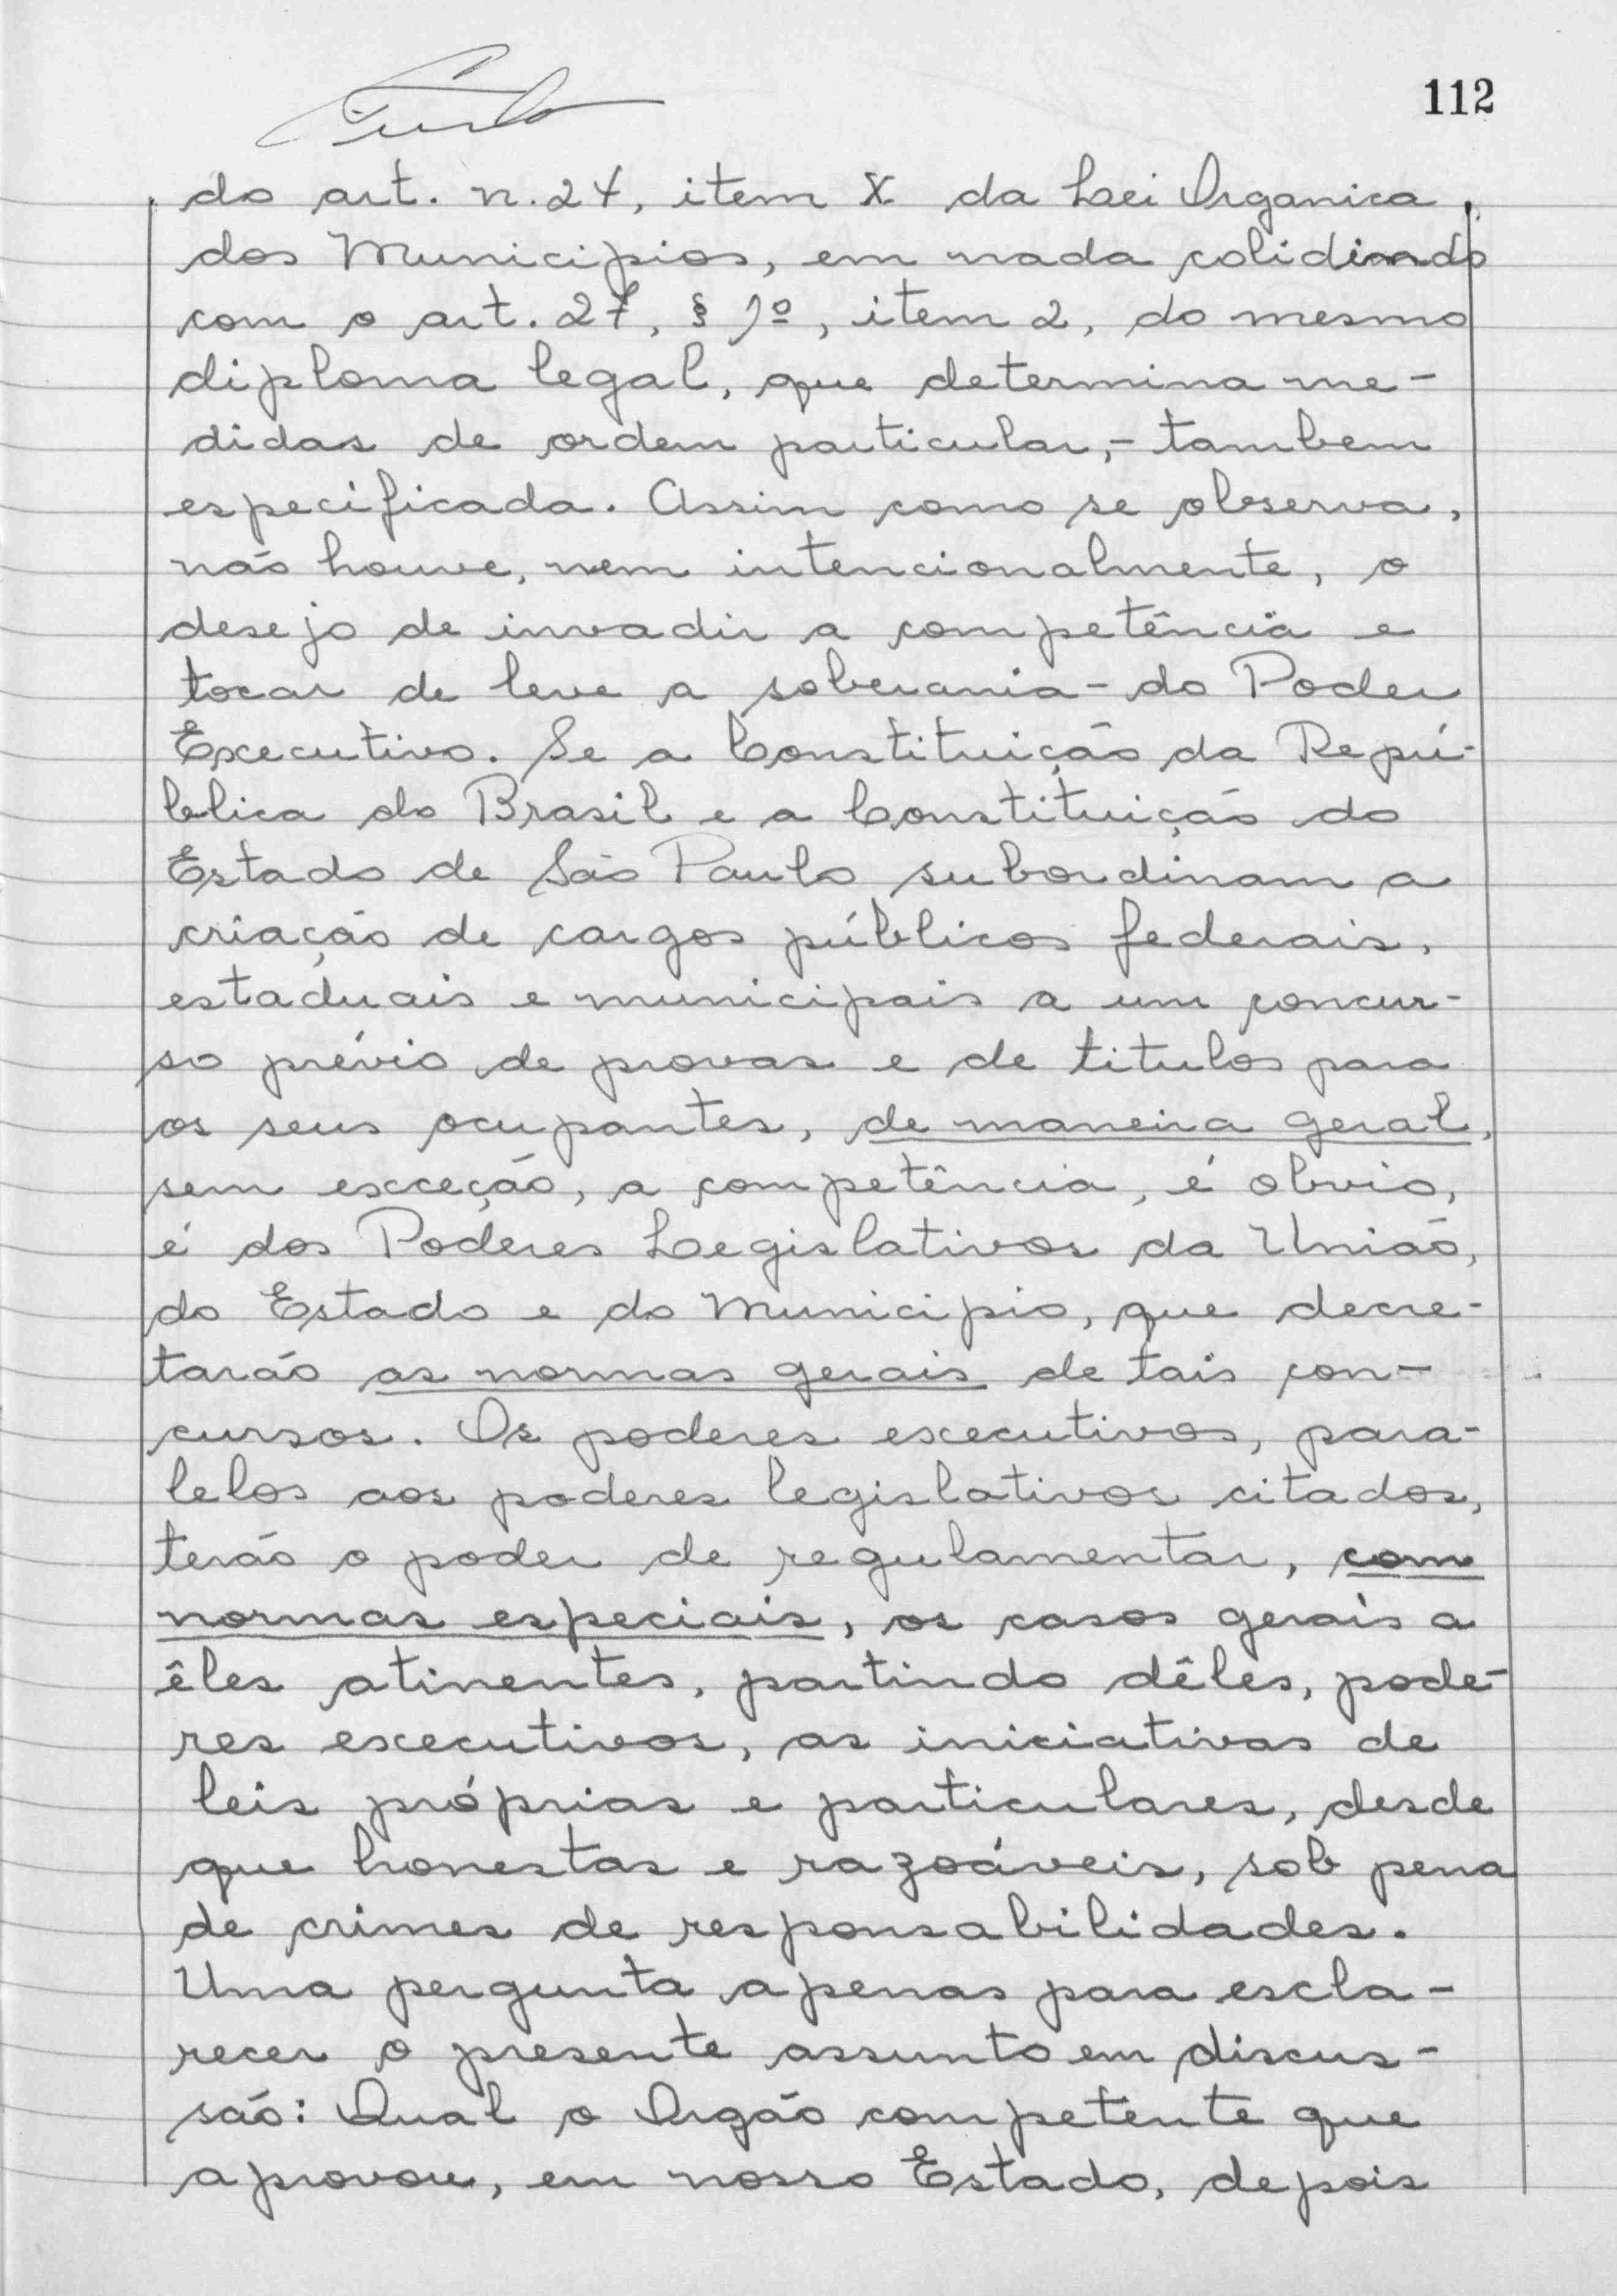 112
do art. n. 24, item X da Lei Organica
dos Municipios, em nada colidindo
com o art. 27, § 1º, item 2, do mesmo
diploma legal, que determina me-
didas de ordem particular,- tambem
especificada. Assim como se observa,
não houve, nem intencionalmente, o
desejo de invadir a competência e
tocar de leve a soberania - do Poder
Executivo. Se a Constituição da Repú-
blica do Brasil e a Constituição do
Estado de São Paulo subordinam a
criação de cargos públicos federais,
estaduais e municipais a um concur-
so prévio de provas e de titulos para
os seus ocupantes, de maneira geral,
sem exceção, a competência, é obvio,
é dos Poderes Legislativos da União,
do Estado e do Municipio, que decre-
tarão as normas gerais de tais con-
cursos. Os poderes executivos, para-
lelos aos poderes legislativos citados,
terão o poder de regulamentar, com
normas especiais, os casos gerais a
êles atinentes, partindo dêles, pode-
res executivos, as iniciativas de
leis próprias e particulares, desde
que honestas e razoáveis, sob pena
de crimes de responsabilidades.
Uma pergunta apenas para escla-
recer o presente assunto em discus-
são: Qual o Orgão competente que
aprovou, em nosso Estado, depois